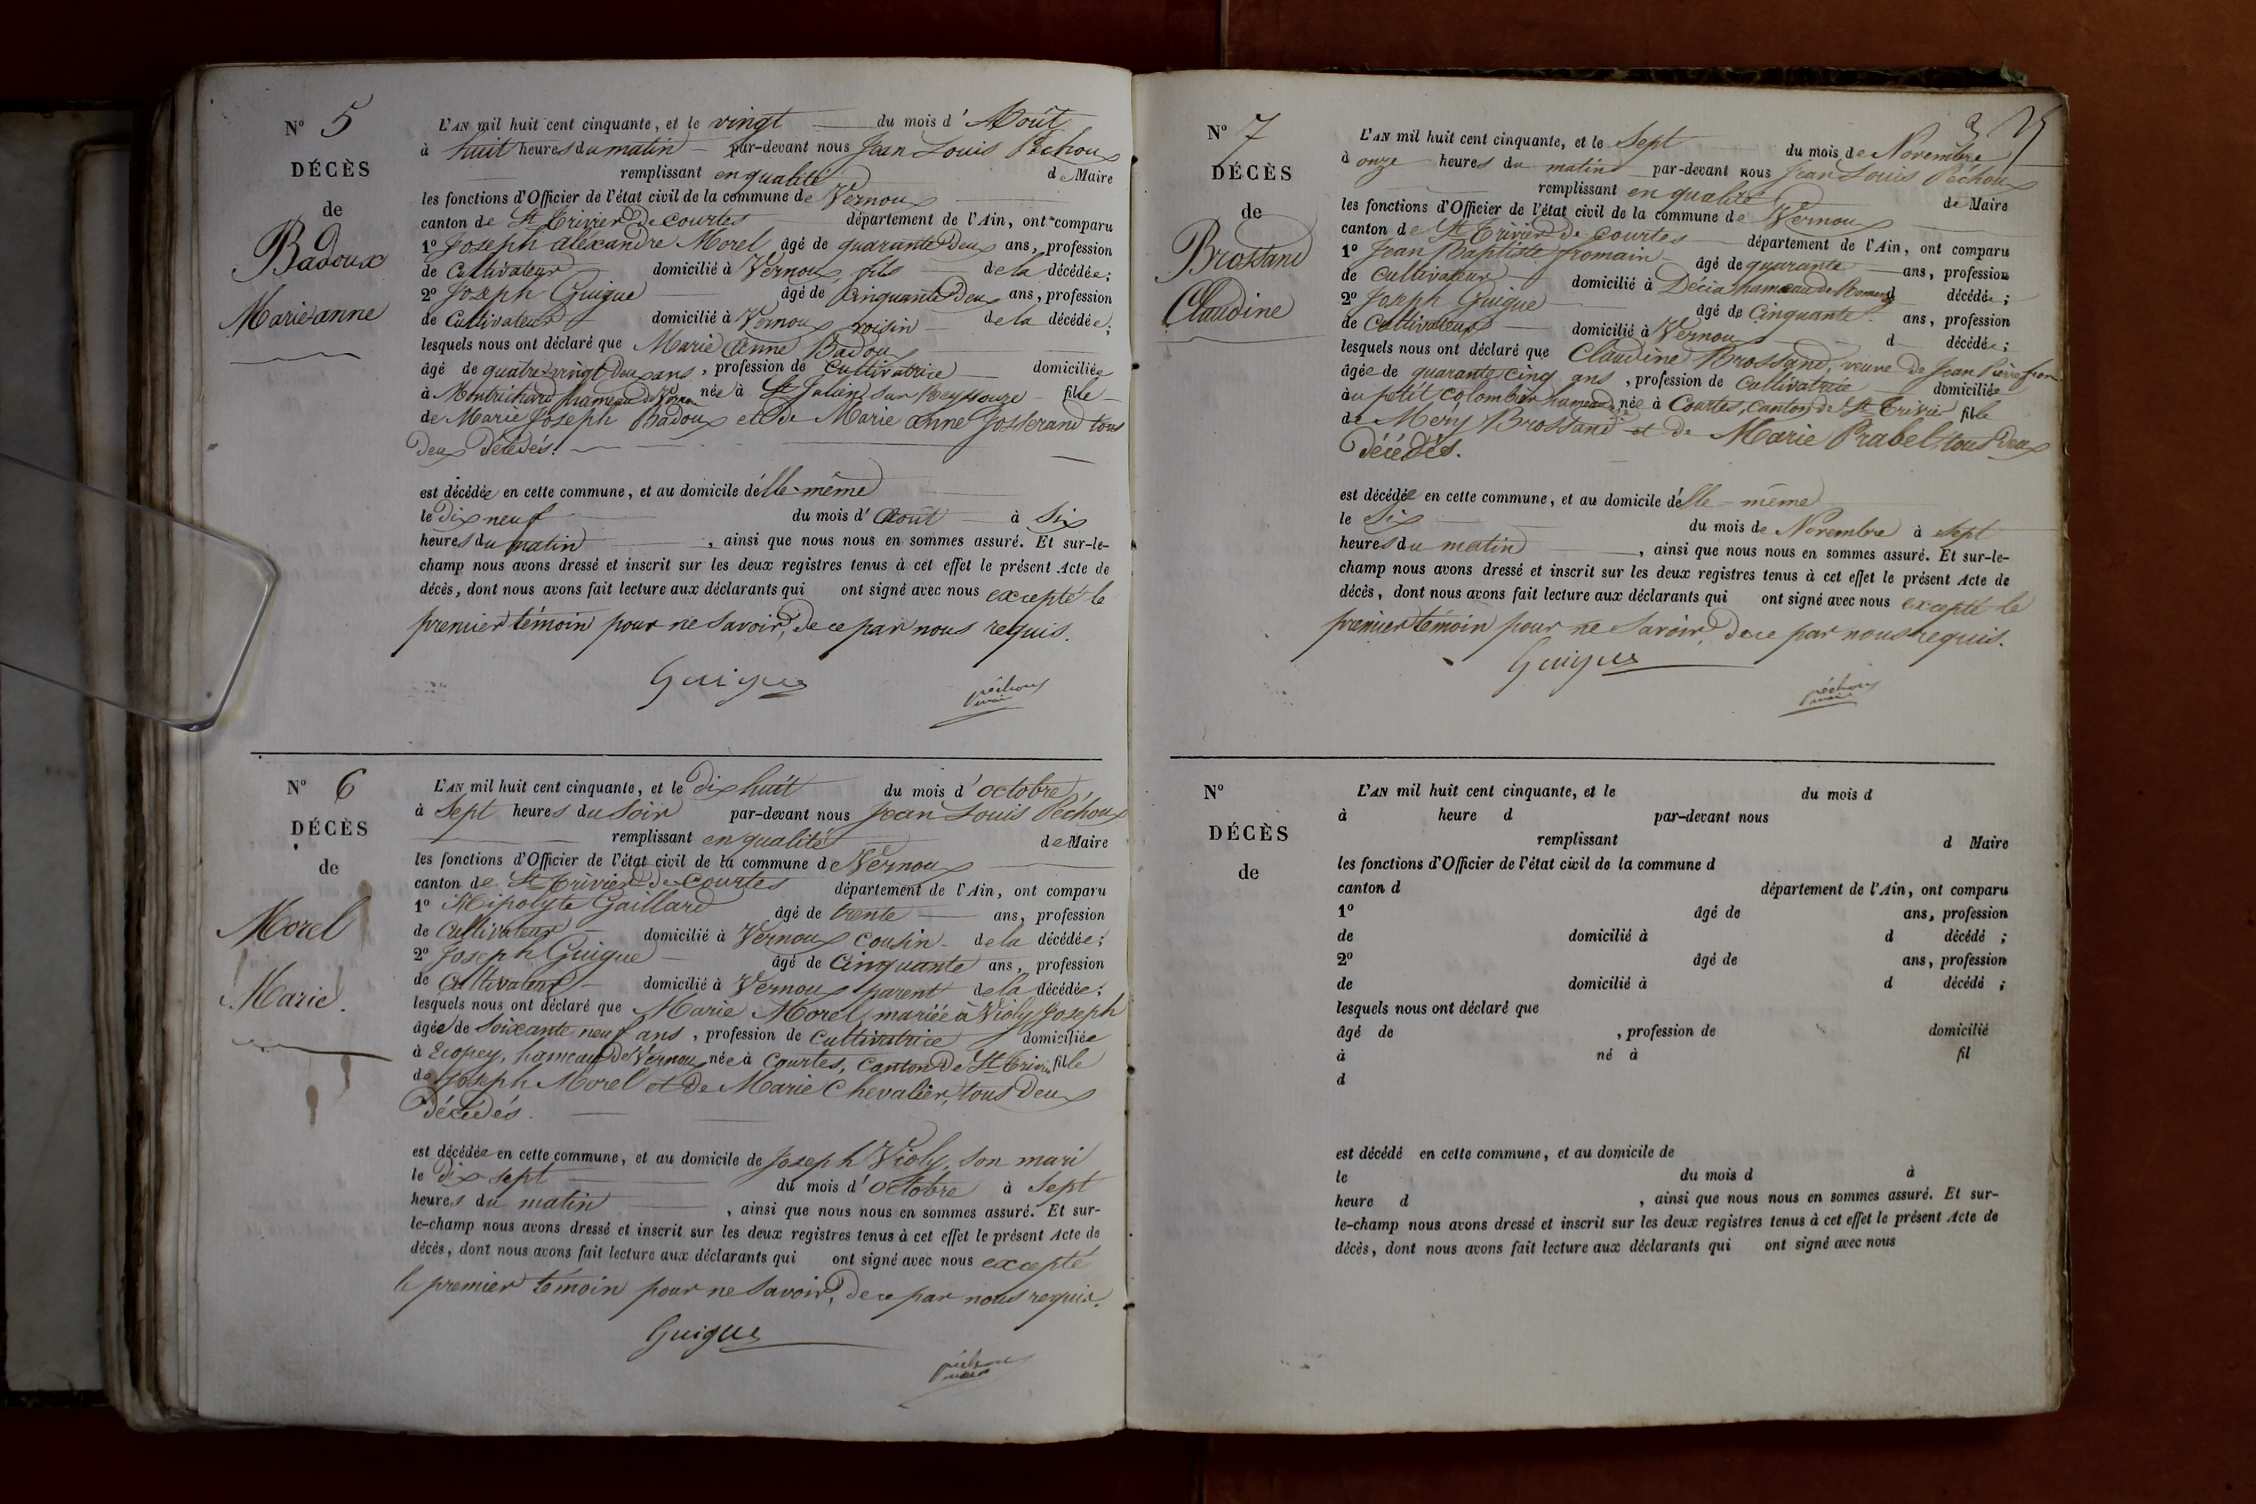 Nº 5
DÉCÈS
de
Badoux
Marie anne
L'AN mil huit cent cinquante, et le vingt du mois d'Août
à huit heures du matin par-devant nous Jean Louis Péchoux
remplissant en qualité de Maire
les fonctions d'Officier de l'état civil de la commune de Vernoux
canton de St Trivier de Courtes département de l'Ain, ont comparu
1º Joseph alexandre Morel âgé de quarante deux ans, profession
de Cultivateur domicilié à Vernoux, fils de la décédée;
2º Joseph Guigue âgé de Cinquante deux ans, profession
de Cultivateur domicilié à Vernoux voisin de la décédée;
lesquels nous ont déclaré que Marie Anne Badoux
âgé de quatre vingt deux ans, profession de Cultivatrice domiciliée
à Montrichard hameau de Vernoux née à St Julien sur Reyssouze fille
de Marie Joseph Badoux et de Marie Anne Josserand tous
deux décédés.
est décédée en cette commune, et au domicile d'elle-même
le Dix neuf du mois d'Août à Six
heures du matin, ainsi que nous nous en sommes assuré. Et sur-le-
champ nous avons dressé et inscrit sur les deux registres tenus à cet effet le présent Acte de
décès, dont nous avons fait lecture aux déclarants qui ont signé avec nous excepté le
premier témoin pour ne savoir, de ce par nous requis.
Guigue
péchoux
maire
Nº 6
DÉCÈS
de
Morel
Marie.
L'AN mil huit cent cinquante, et le dix huit du mois d'octobre
à Sept heures du soir par-devant nous Jean Louis Péchoux
remplissant en qualité de Maire
les fonctions d'Officier de l'état civil de la commune de Vernoux
canton de St Trivier de Courtes département de l'Ain, ont comparu
1º Hipolyte Gaillard âgé de trente ans, profession
de Cultivateur domicilié à Vernoux cousin de la décédée;
2º Joseph Guigue âgé de Cinquante ans, profession
de Cultivateur domicilié à Vernoux parent de la décédée;
lesquels nous ont déclaré que Marie Morel, mariée à Violy Joseph
âgée de Soixante neuf ans, profession de Cultivatrice domiciliée
à Ecopey, hameau de Vernoux née à Courtes, Canton de St Trivier fille
de Joseph Morel et de Marie Chevalier, tous deux
décédés.
est décédée en cette commune, et au domicile de Joseph Violy, son mari
le Dix sept du mois d'octobre à Sept
heures du matin, ainsi que nous nous en sommes assuré. Et sur-
le-champ nous avons dressé et inscrit sur les deux registres tenus à cet effet le présent Acte de
décès, dont nous avons fait lecture aux déclarants qui ont signé avec nous excepté
le premier témoin pour ne savoir, de ce par nous requis.
Guigue
péchoux
maire
Nº 7
DÉCÈS
de
Brossand
Claudine
L'AN mil huit cent cinquante, et le Sept du mois de Novembre
à onze heures du matin par-devant nous Jean Louis Péchoux
remplissant en qualité de Maire
les fonctions d'Officier de l'état civil de la commune de Vernoux
canton de St Trivier de Courtes département de l'Ain, ont comparu
1º Jean Baptiste fromain âgé de quarante ans, profession
de Cultivateur domicilié à hameau de d décédée;
2º Joseph Guigue âgé de Cinquante ans, profession
de Cultivateur domicilié à Vernoux d décédée;
lesquels nous ont déclaré que Claudine Brossand, veuve de Jean Pierre
âgée de quarante cinq ans, profession de Cultivatrice domiciliée
au petit Colombier hameau née à Courtes, canton de St Trivier fille
de Méry Brossand et de Marie Prabel, tous deux
décédés.
est décédée en cette commune, et au domicile d'elle-même
le Six du mois de Novembre à Sept
heures du matin, ainsi que nous nous en sommes assuré. Et sur-le-
champ nous avons dressé et inscrit sur les deux registres tenus à cet effet le présent Acte de
décès, dont nous avons fait lecture aux déclarants qui ont signé avec nous excepté le
premier témoin pour ne savoir, de ce par nous requis.
Guigue
péchoux
maire
Nº
DÉCÈS
de
L'AN mil huit cent cinquante, et le du mois d
à heure d par-devant nous
remplissant d Maire
les fonctions d'Officier de l'état civil de la commune d
canton d département de l'Ain, ont comparu
1º âgé de ans, profession
de domicilié à d décédé ;
2º âgé de ans, profession
de domicilié à d décédé ;
lesquels nous ont déclaré que
âgé de , profession de domicilié
à né à fil
d
est décédé en cette commune, et au domicile de
le du mois d à
heure d , ainsi que nous nous en sommes assuré. Et sur-
le-champ nous avons dressé et inscrit sur les deux registres tenus à cet effet le présent Acte de
décès, dont nous avons fait lecture aux déclarants qui ont signé avec nous